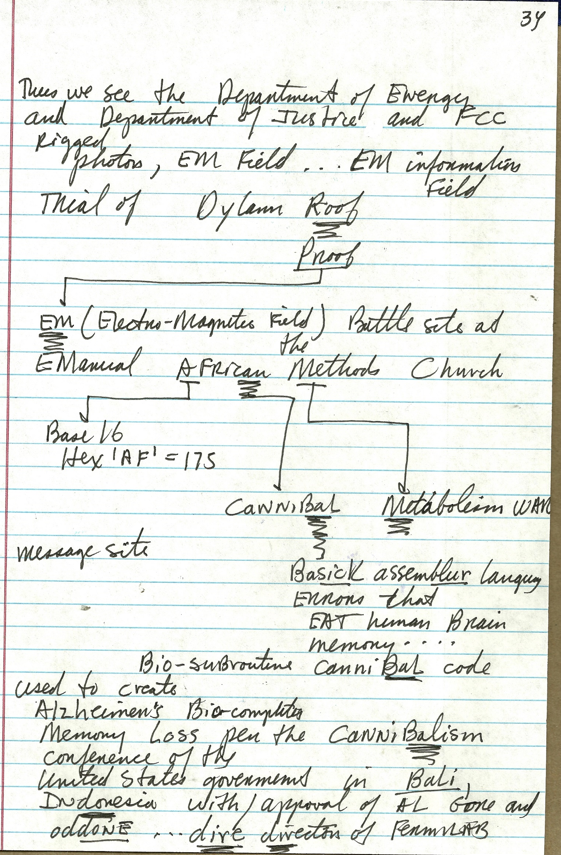 34
Thus we see the Department of Ewengy
and Department of Justice and FCC
Rigged
photos, EM Field ... EM information
Field
Trial of Dylann Roof
Proof
EM (Electro-Magnetic Field) Battle site at
the
EManual AFRican Methods Church
Base 16
Hex 'AF' = 175
CaNNiBal Metabolism WAR
message site
Basick assemblur languag
ERRORS that
EAT human Brain
memory....
Bio-subroutine canniBal code
used to create
Alzheimer's Bio-computer
Memory Loss per the CaNNiBalism
conference of the
United States governments in Bali,
INdonesia with approval of AL Gore and
oddoNE ... dire director of FermiLAB